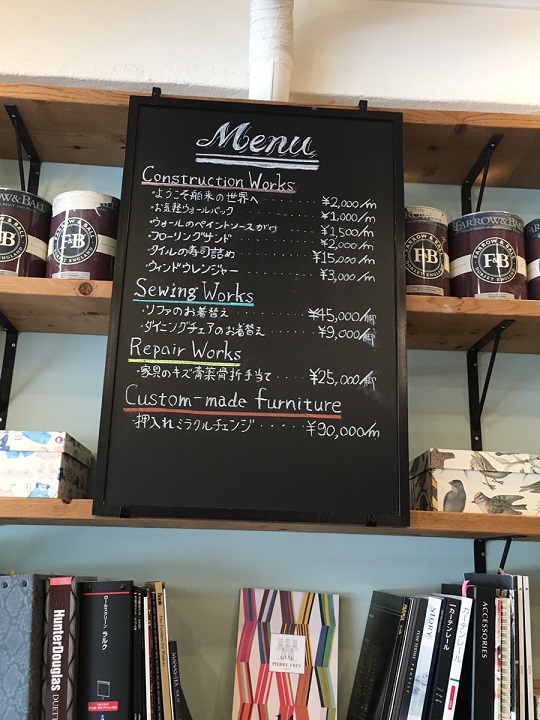 Menu
Construction Works
・ようこそ舶来の世界へ ・・・・・ ¥2,000/m
・お気軽ウォールパック ・・・・・・ ¥1,000/m
・ウォールのペイントソースがけ ¥1,500/m
・フローリングサンド ・・・・・・・ ¥2,000/m
・タイルの寿司詰め ・・・・・・・ ¥15,000/m
・ウィンドウレンジャー ・・・・・・ ¥3,000/m
Sewing Works
・ソファのお着替え ・・・・・・ ¥45,000/脚
・ダイニングチェアのお着替え ・・ ¥9,000/脚
Repair Works
・家具のキズ膏薬骨折手当て ・・・ ¥25,000/脚
Custom-made furniture
・押入れミラクルチェンジ ・・・・・ ¥90,000/m
FARROW & BALL
F&B
FARROW & BALL
F&B
FARROW & BALL
F&B
HunterDouglas
DUETTE
ロールスクリーン
ラルク
PIERRE FREY
STORY
カーテンレール
カーテンレール
ACCESSORIES